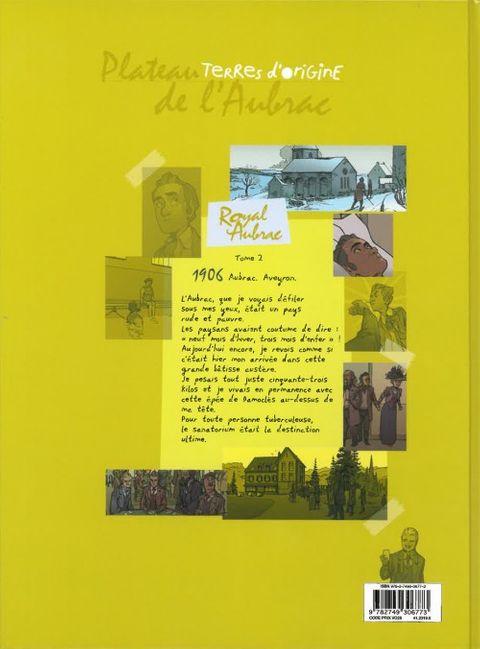 Plateau TERRES d'ORiGiNE
de l'Aubrac
Royal
Aubrac
Tome 2
1906 Aubrac. Aveyron.
L'Aubrac, que je voyais défiler
sous mes yeux, était un pays
rude et pauvre.
Les paysans avaient coutume de dire :
« neuf mois d'hiver, trois mois d'enfer » !
Aujourd'hui encore, je revois comme si
c'était hier mon arrivée dans cette
grande bâtisse austère.
Je pesais tout juste cinquante-trois
kilos et je vivais en permanence avec
cette épée de Damoclès au-dessus de
ma tête.
Pour toute personne tuberculeuse,
le sanatorium était la destination
ultime.
ISBN 978-2-7493-0677-3
9 782749 306773
CODE PRIX VO28